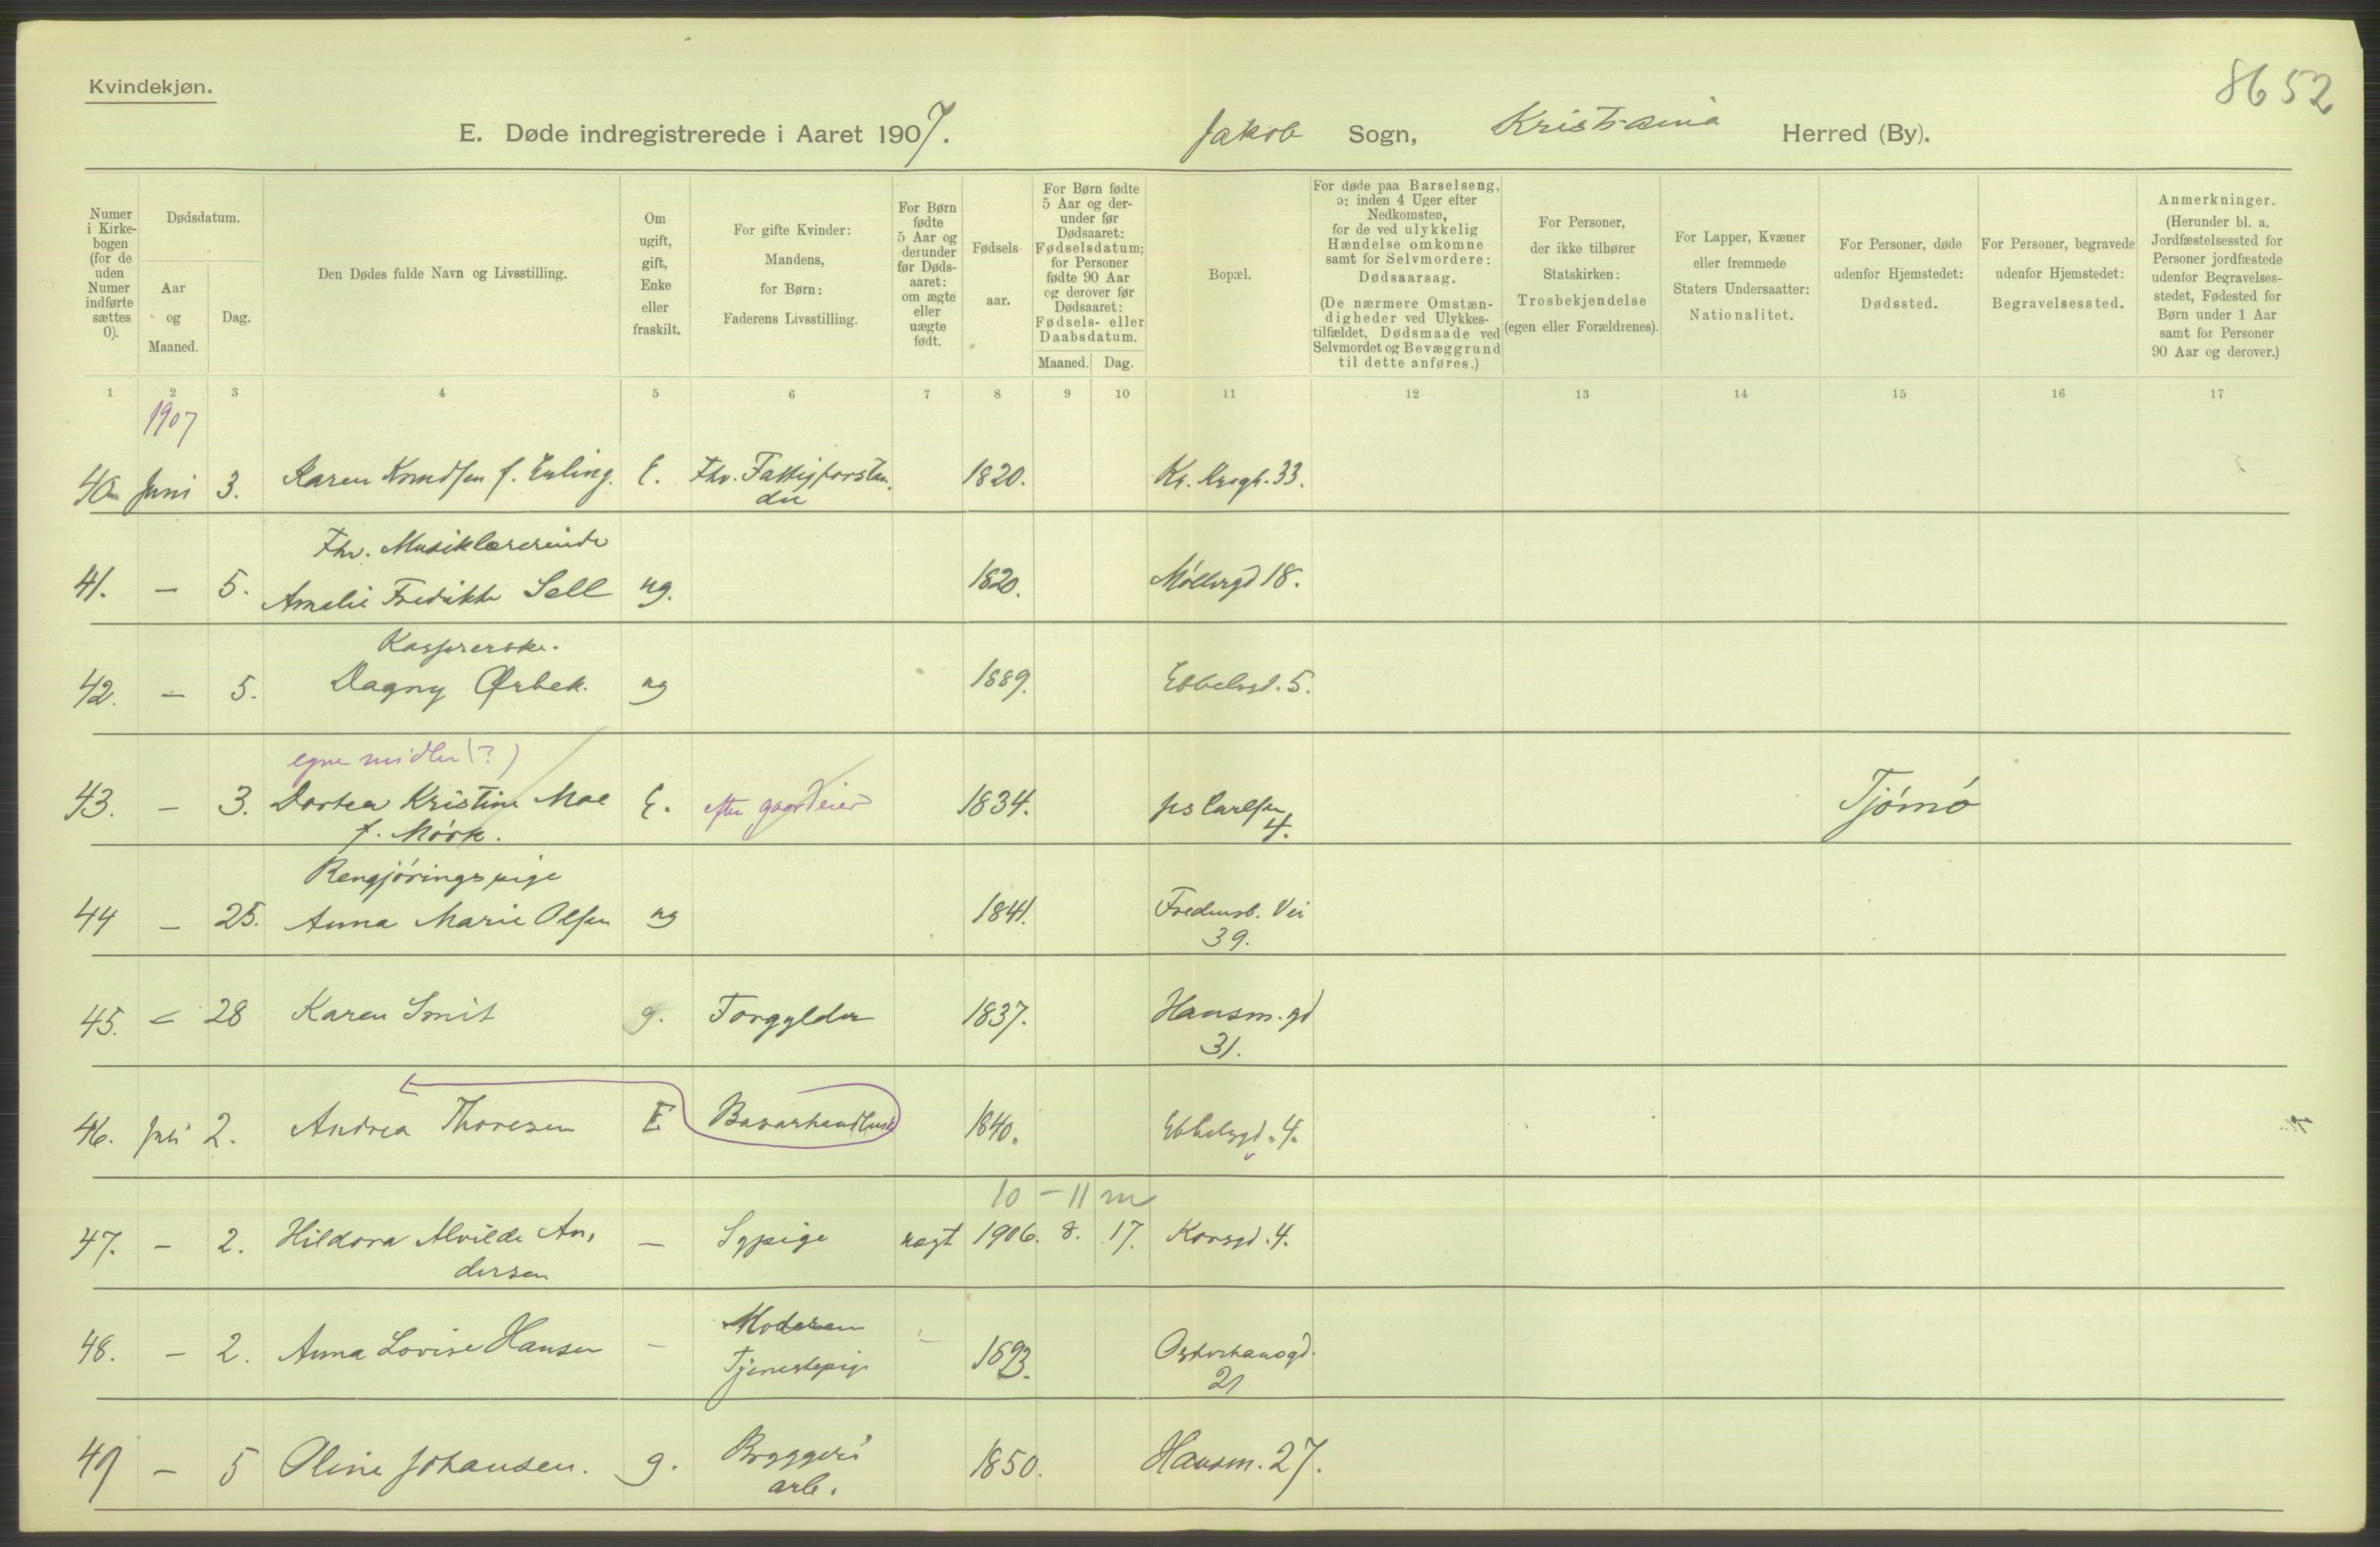 Kvindekjøn.
8652
E. Døde indregistrerede i Aaret 1907. Jakob Sogn, Kristiania Herred (By).
Numer i Kirkebogen (for de uden Numer indførte sættes 0).
Dødsdatum.
Aar og Maaned.
Dag.
Den Dødes fulde Navn og Livsstilling.
Om ugift, gift, Enke eller fraskilt.
For gifte Kvinder: Mandens, for Børn: Faderens Livsstilling.
For Børn fødte 5 Aar og derunder før Dødsaaret: om ægte eller uægte født.
Fødselsaar.
For Børn fødte 5 Aar og derunder før Dødsaaret: Fødselsdatum; for Personer fødte 90 Aar og derover før Dødsaaret: Fødsels- eller Daabsdatum.
Maaned. Dag.
Bopæl.
For døde paa Barselseng, ɔ: inden 4 Uger efter Nedkomsten, for de ved ulykkelig Hændelse omkomne samt for Selvmordere: Dødsaarsag.
(De nærmere Omstændigheder ved Ulykkestilfældet, Dødsmaade ved Selvmordet og Bevæggrund til dette anføres.)
For Personer, der ikke tilhører Statskirken: Trosbekjendelse (egen eller Forældrenes).
For Lapper, Kvæner eller fremmede Staters Undersaatter: Nationalitet.
For Personer, døde udenfor Hjemstedet: Dødssted.
For Personer, begravede udenfor Hjemstedet: Begravelsessted.
Anmerkninger. (Herunder bl. a. Jordfæstelsessted for Personer jordfæstede udenfor Begravelsesstedet, Fødested for Børn under 1 Aar samt for Personer 90 Aar og derover.)
1 2 3 4 5 6 7 8 9 10 11 12 13 14 15 16 17
1907
40 Juni 3. Karen Knudsen f. E. Fhv. Fattigforstan. 1820. Kr. 33.
der
Fhv. Musiklærerinde
41. - 5. Amalie Fredrikke Sell ug. 1820. Møllergd 18.
Kasserske.
42. - 5. Dagny Ørbek. ug 1889. Ebbelsgd. 5.
egne midler (?)
43. - 3. Dortea Kristine Moe E. efter gaardeier 1834. Tjømø
f. Mørk. 4.
Rengjøringspige
44 - 25. Anna Marie Olsen ug 1841. Fredensb. Vei
39.
45. - 28 Karen Smit g. Forgylder 1837. Hausm. gd
31.
46. Juli 2. Andrea Thoresen E 1840. Ebbelsgd. 4.
10 - 11 m
47. - 2. Hildora Alvilde An, - Sypige uægt 1906. 8. 17. Korsgd. 4.
dersen
Moderen
48. - 2. Anna Lovise Hansen - Tjenestepige - 1893. Osterhausgd.
21
49 - 5 Oline Johansen. g. Bryggeri 1850. Hausm. 27.
arb.